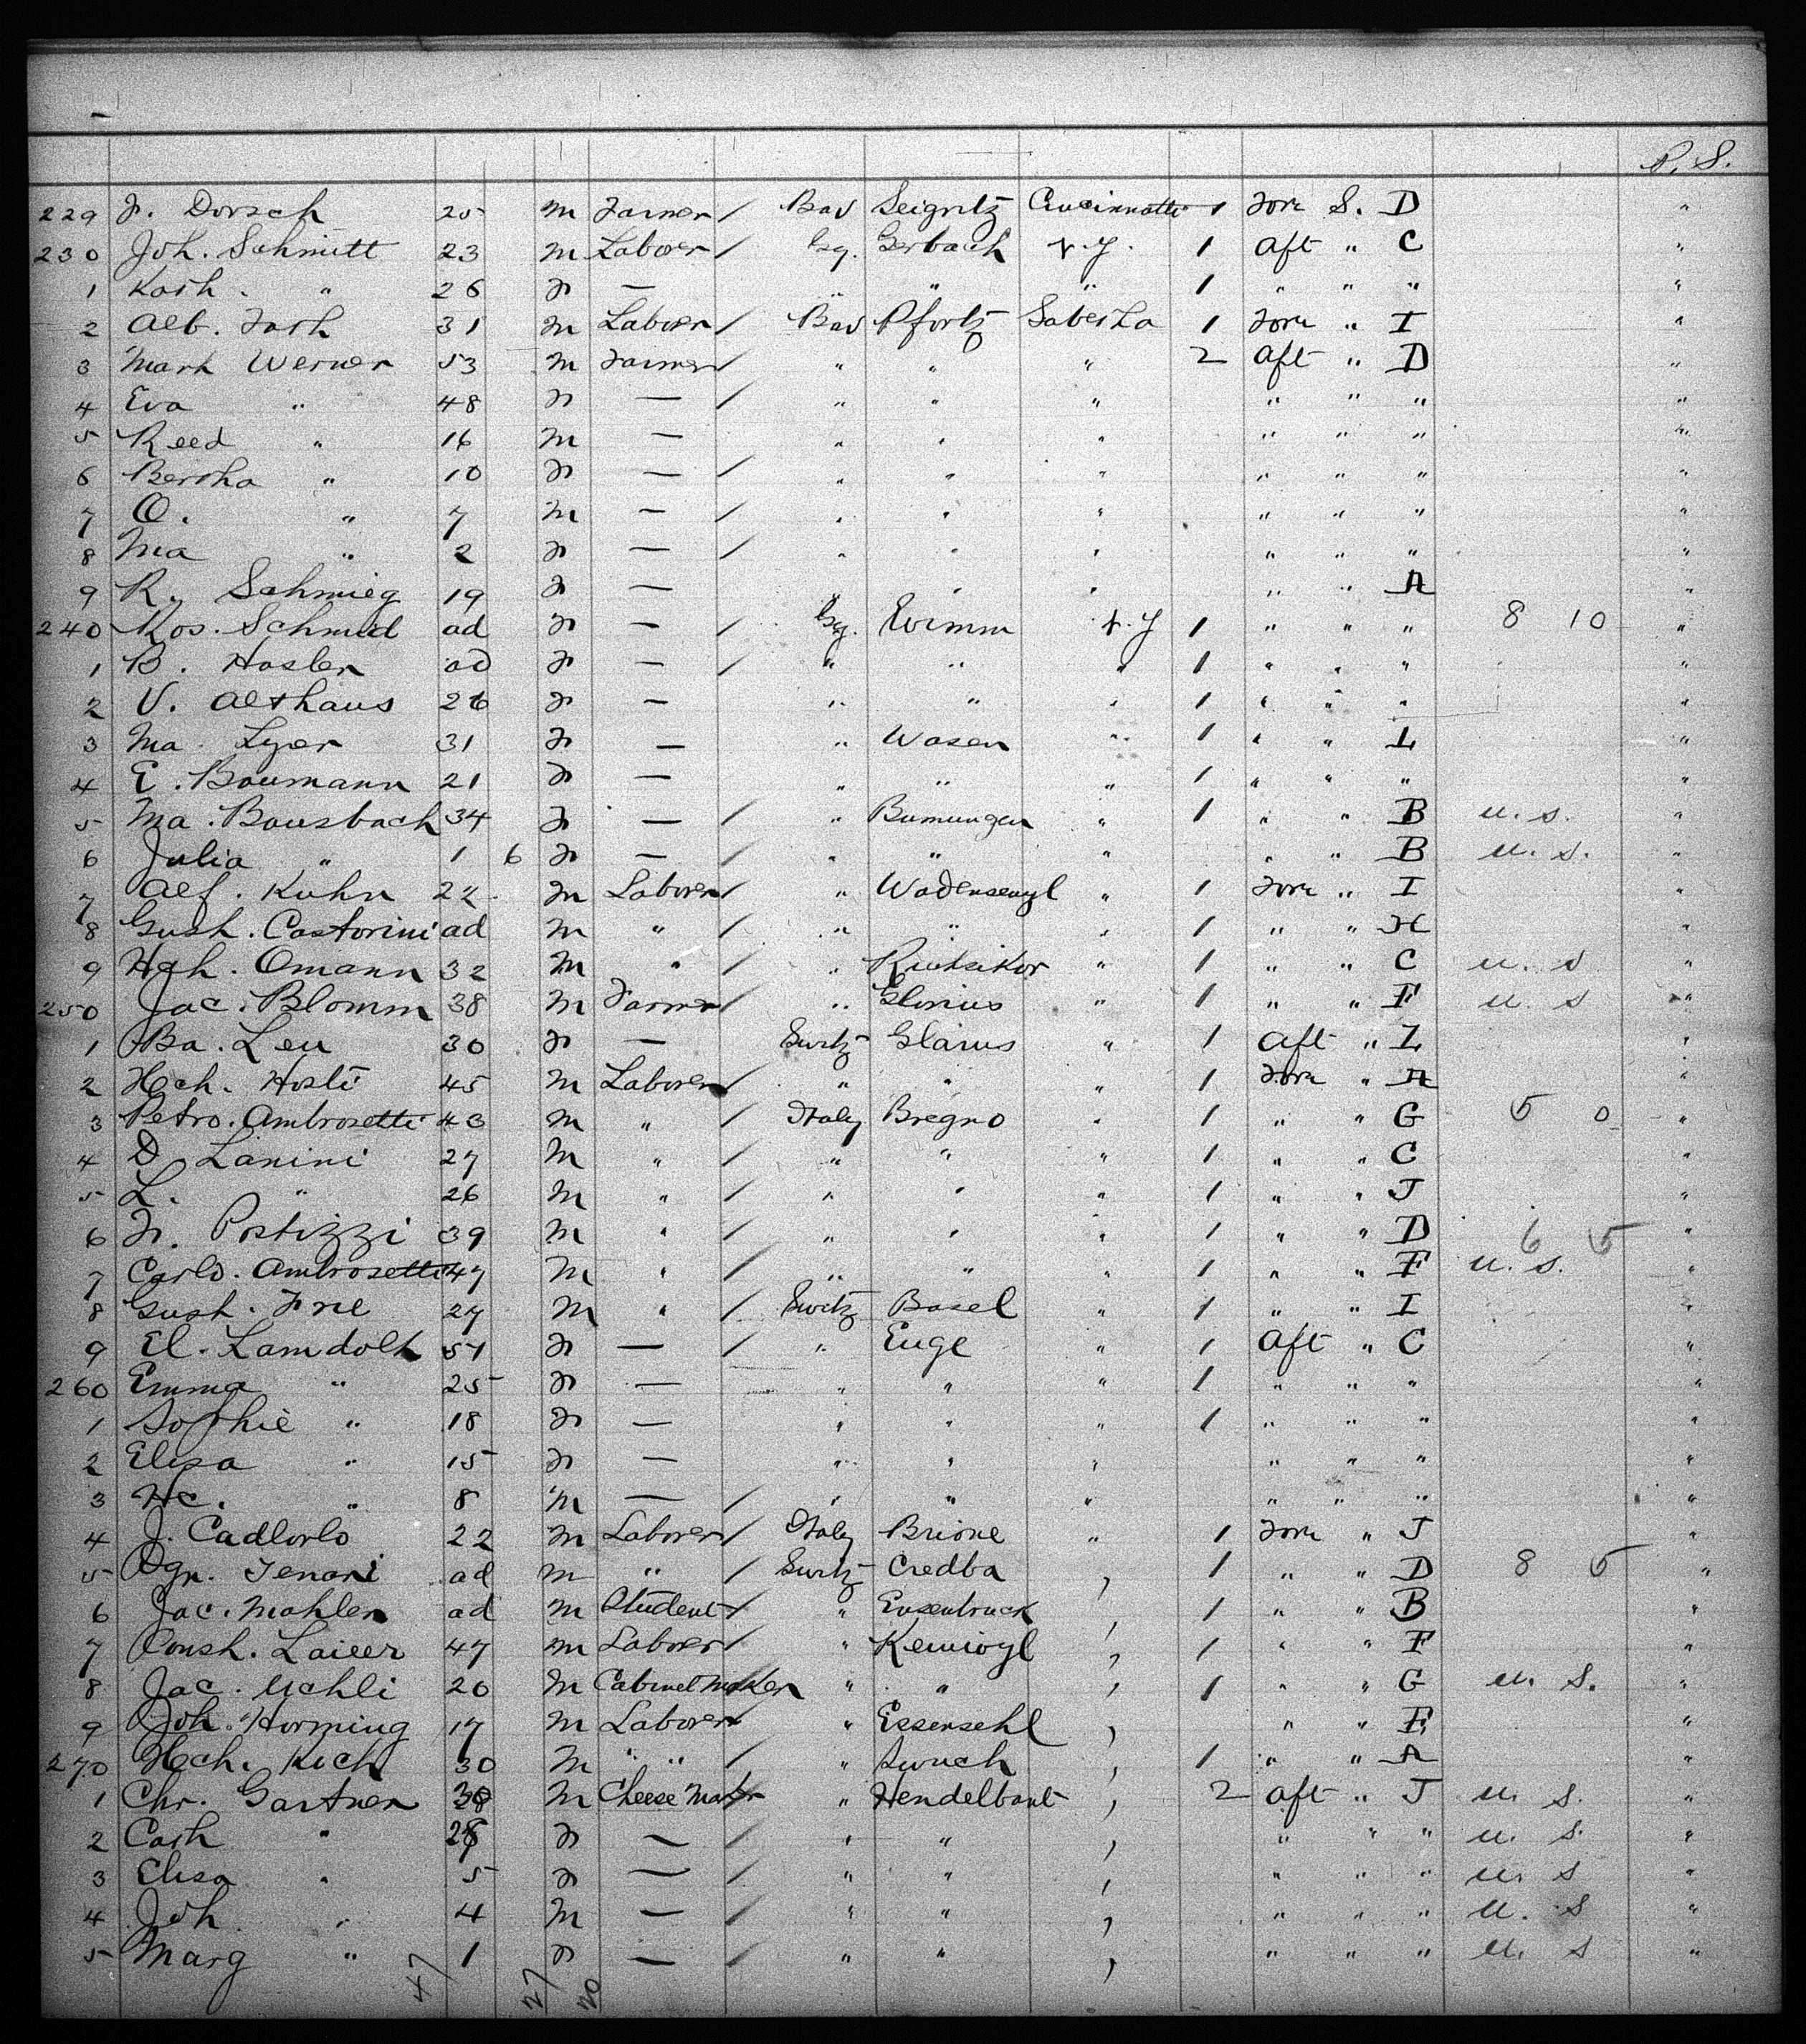 P. S.
229 F. Dorsch 25 m Farmer / Bav Seigritz Cincinnatti 1 Fore S. D "
230 Joh. Schmitt 23 m Laborer / Gerbach N.Y. 1 Aft " C "
1 Kath. " 26 F — " " " 1 " " " "
2 Alb. 31 m Laborer / Bav Pfortz 1 Fore " I "
3 Mark Werner 53 m Farmer / " " " 2 Aft " D "
4 Eva " 48 F — / " " " " " " "
5 Reed " 16 m — " " " " " " "
6 Bertha " 10 F — / " " " " " " "
7 O. " 7 m — / " " " " " " "
8 Ma " 2 F — / " " " " " " "
9 R. Schmieg 19 F — " " " " A "
240 Ros. Schmid ad F — / Wimm N.Y 1 " " " 8 10 "
1 B. Hasler ad F — / " " " 1 " " " "
2 V. Althaus 26 F — " " " 1 " " " "
3 Ma. Lyer 31 F — " Wasen " 1 " " L "
4 E. Baumann 21 F — " " " 1 " " " "
5 Ma. Bausbach 34 F — / " " 1 " " B u. s. "
6 Julia " 1 6 F — / " " " " " B u. s. "
7 Alf. Kuhn 22 m Laborer / " " 1 Fore " I "
8 Gust. Castorini ad m " / " " " 1 " " H "
9 Hch. Omann 32 m " / " " 1 " " C u. s "
250 Jac. Blomm 38 m Farmer / " Glarius " 1 " " F u. s "
1 Ba. Leu 30 F — Switz Glarus " 1 Aft " L "
2 Hch. Hosti 45 m Laborer / " " " 1 Fore " A "
3 Petro. Ambrosetti 43 m " / Italy Bregno " 1 " " G 5 0 "
4 D Lanini 27 m " / " " " 1 " " C "
5 L. " 26 m " / " " " 1 " " J "
6 F. Postizzi 39 m " / " " " 1 " " D 6 5 "
7 Carlo. Ambrosetti 47 m " / " " " 1 " " F u. s. "
8 Gust. Frie 27 m " / Switz Basel " 1 " " I "
9 El. Lamdolt 51 F — / " Enge " 1 Aft " C "
260 Emma " 25 F — " " " 1 " " " "
1 Sophie " 18 F — " " " 1 " " " "
2 Elisa " 15 F — " " " " " " "
3 Hc. " 8 m — / " " " " " " "
4 J. Cadlorlo 22 m Laborer / Italy Brione " 1 Fore " J "
5 Tenari ad m " / Switz Credba , 1 " " D 8 5 "
6 Jac. Mahler ad m Student / " , 1 " " B "
7 47 m Laborer / " , 1 " " F "
8 Jac. Uchli 20 m Cabinet maker " " , 1 " " G u. s. "
9 Joh. Horming 17 m Laborer " Essersehl , " " E "
270 Hch. Kich 30 m " " / " , 1 " " A "
1 Chr. Gartner m Cheese maker " Hendelbank , 2 Aft " J u. s. "
2 Cath " F — / " " , " " " u. s. "
3 Elisa " 5 F — / " " , " " " u. s "
4 Joh " 4 m — / " " , " " " u. s "
5 Marg " 1 F — / " " , " " " u. s "
47 27 20